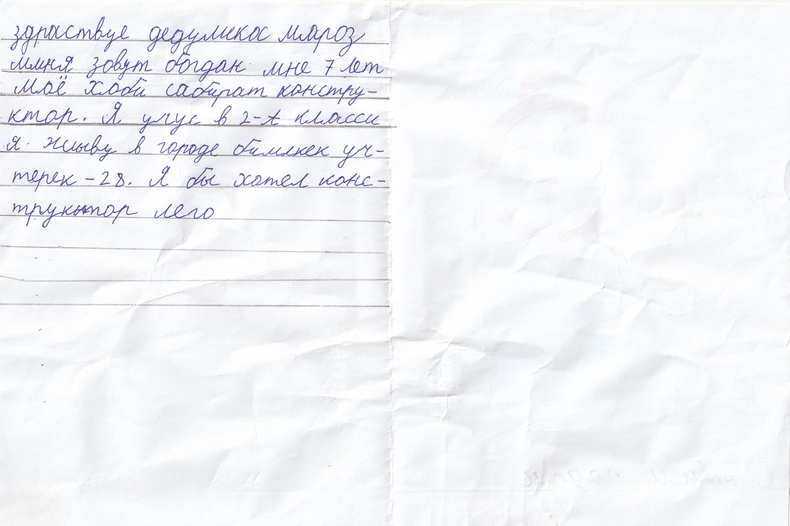 здраствуе дедушкас мароз
мминя зовут богдан мне 7 лет
моё хоби сабират констру-
ктор. Я учус в 2-А класси
я живу в городе бишкек уч-
терек-28. Я бы хател конс-
труктор лего
С новым годам